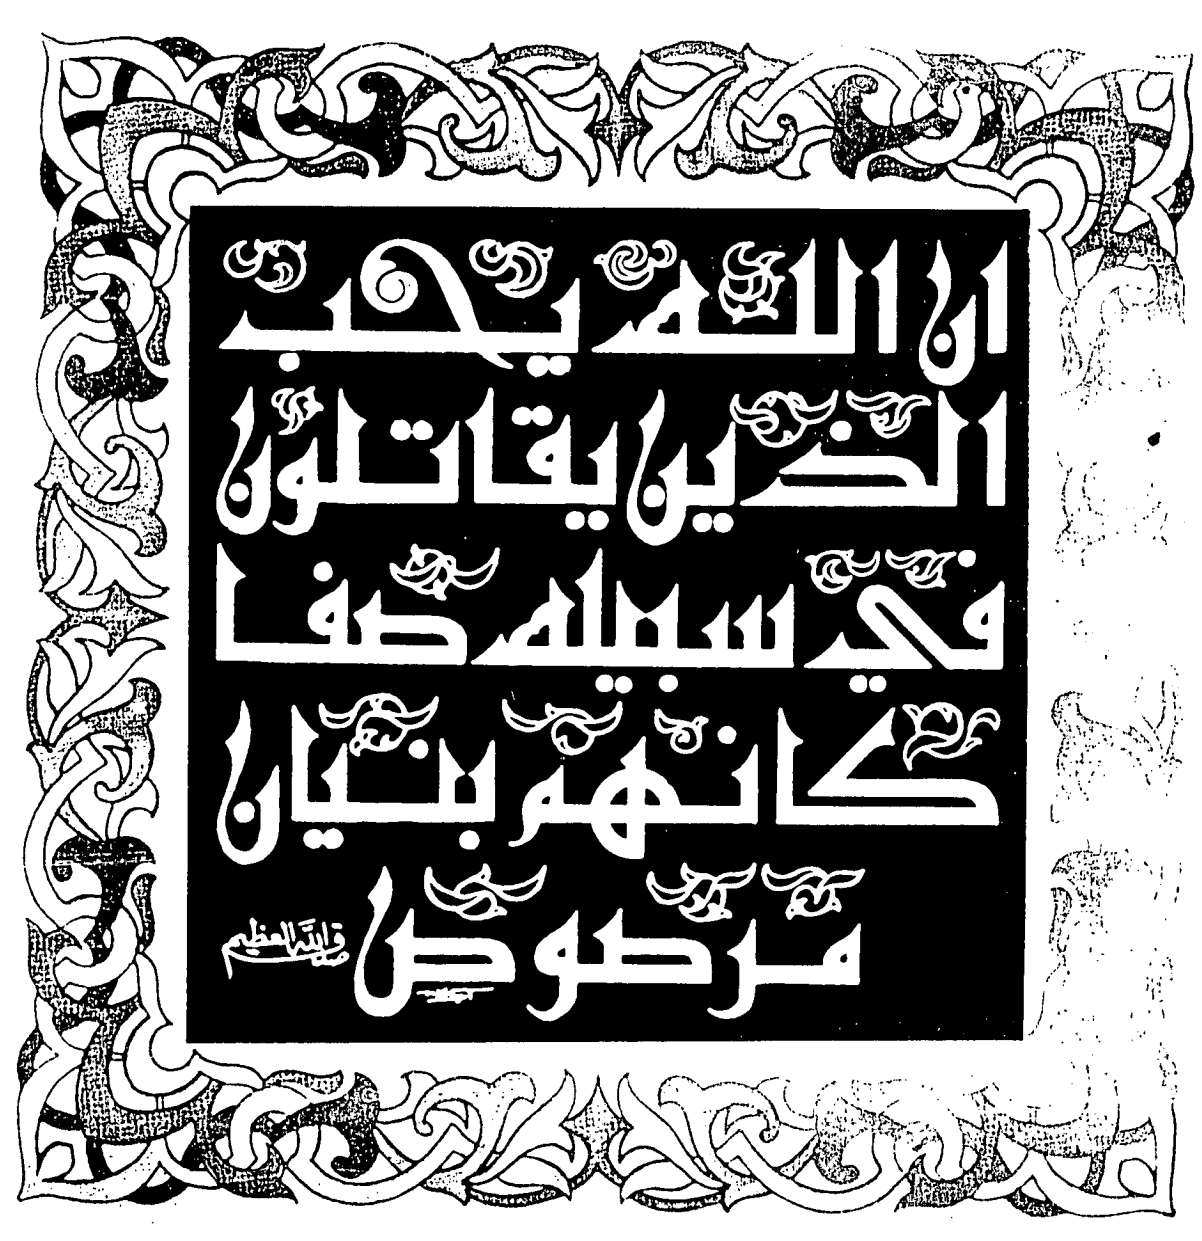 ان الله يحب
الذين يقاتلون
في سبيله صفا
كانهم بنيان
مرصوص
صدق الله العظيم